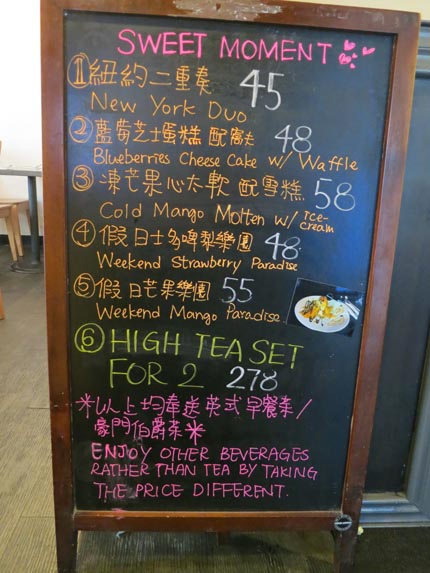 SWEET MOMENT
① 紐約二重奏 45
New York Duo
② 藍莓芝士蛋糕 配窩夫 48
Blueberries Cheese Cake w/ Waffle
③ 凍芒果心太軟 配雪糕 58
Cold Mango Molten w/ Ice-cream
④ 假日士多啤梨樂園 48
Weekend Strawberry Paradise
⑤ 假日芒果樂園 55
Weekend Mango Paradise
⑥ HIGH TEA SET
FOR 2 278
*以上均奉送英式早餐茶/
豪門伯爵茶*
ENJOY OTHER BEVERAGES
RATHER THAN TEA BY TAKING
THE PRICE DIFFERENT.